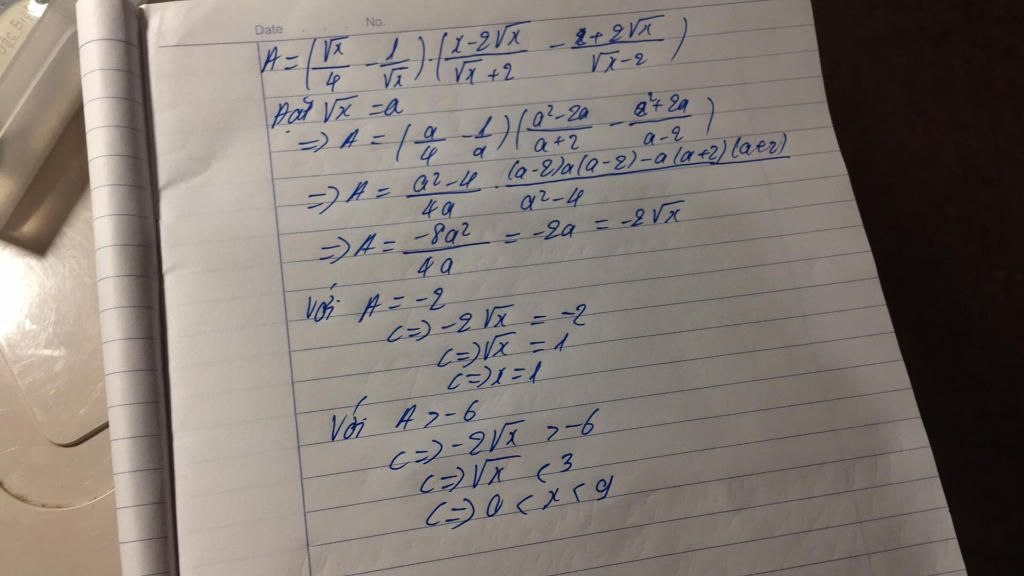 Date No.
A = (√x/4 - 1/√x) · (x-2√x/√x+2 - x+2√x/√x-2)
Đặt √x = a
=> A = (a/4 - 1/a)(a²-2a/a+2 - a²+2a/a-2)
=> A = a²-4/4a · (a-2)a(a-2)-a(a+2)(a+2)/a²-4
=> A = -8a²/4a = -2a = -2√x
Với A = -2
<=> -2√x = -2
<=> √x = 1
<=> x = 1
Với A > -6
<=> -2√x > -6
<=> √x < 3
<=> 0 < x < 9